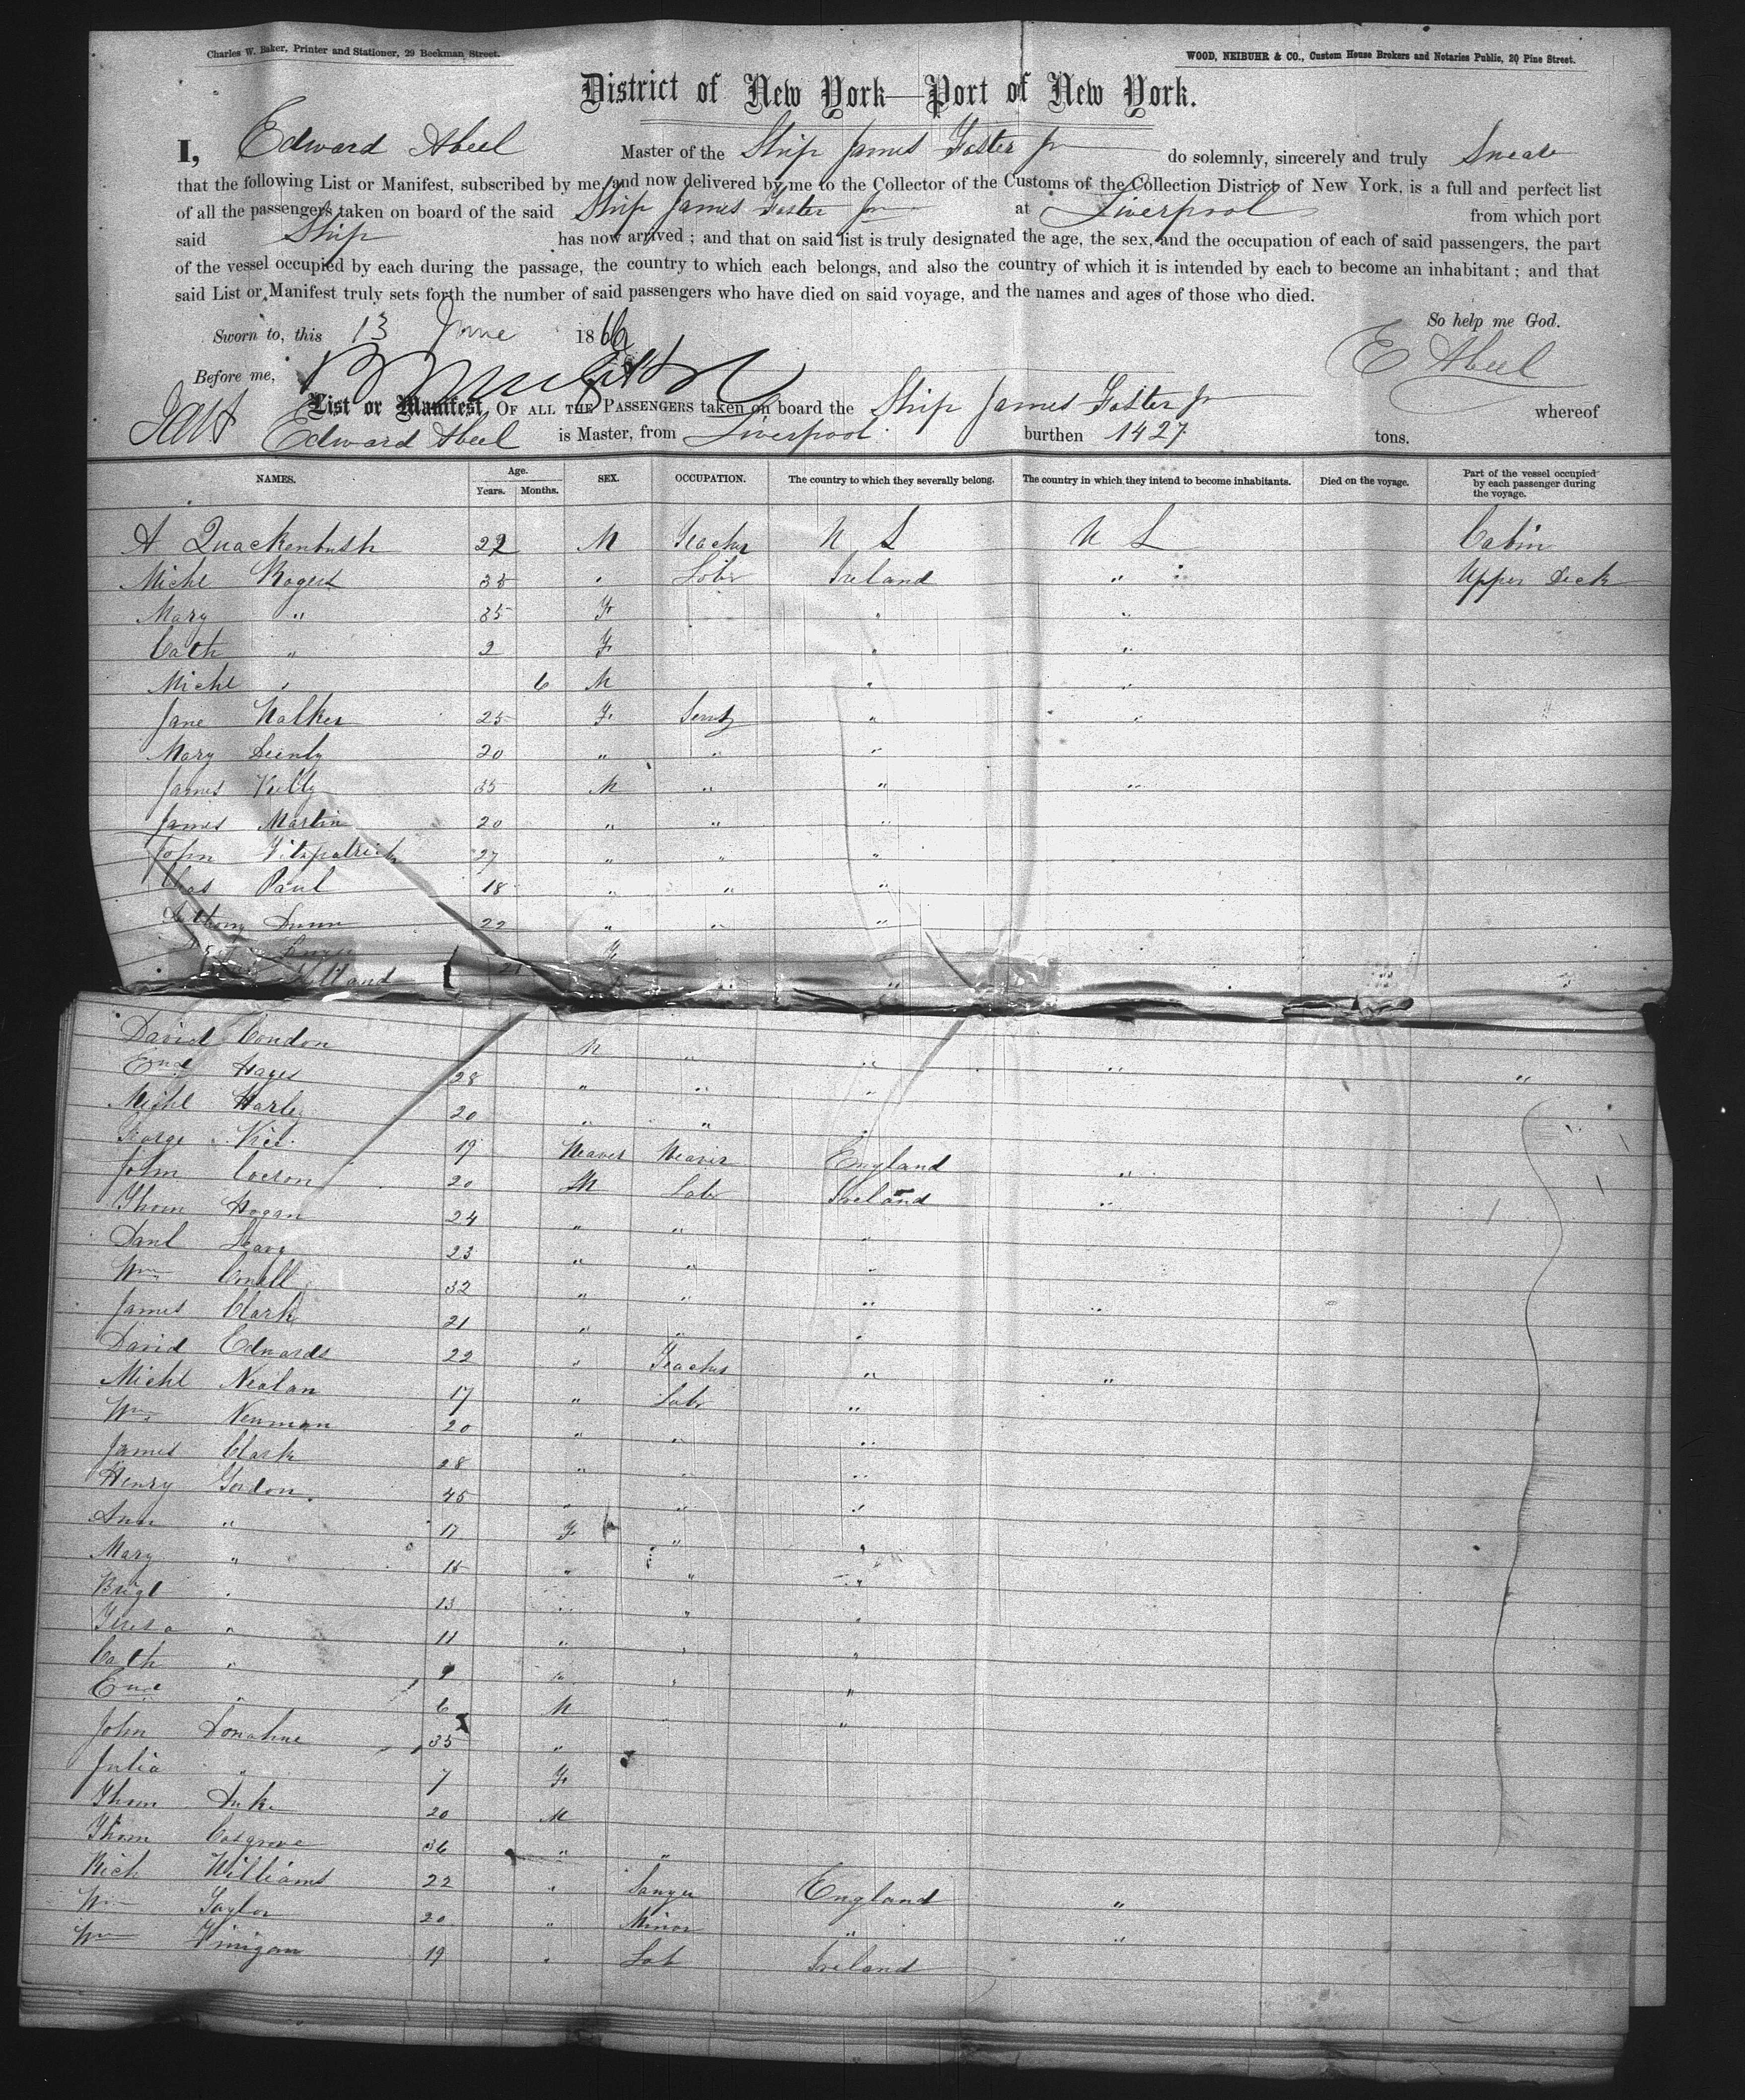 Charles W. Baker, Printer and Stationer, 29 Beekman Street.
WOOD, NEIBUHR & CO., Custom House Brokers and Notaries Public, 20 Pine Street.
District of New York—Port of New York.
I, Edward Abeel Master of the Ship James Foster Jr do solemnly, sincerely and truly Swear
that the following List or Manifest, subscribed by me, and now delivered by me to the Collector of the Customs of the Collection District of New York, is a full and perfect list
of all the passengers taken on board of the said Ship James Foster Jr at Liverpool from which port
said Ship has now arrived; and that on said list is truly designated the age, the sex, and the occupation of each of said passengers, the part
of the vessel occupied by each during the passage, the country to which each belongs, and also the country of which it is intended by each to become an inhabitant; and that
said List or Manifest truly sets forth the number of said passengers who have died on said voyage, and the names and ages of those who died.
So help me God.
Sworn to, this 13 June 1866
E Abeel
Before me,
List or Manifest OF ALL THE PASSENGERS taken on board the Ship James Foster Jr whereof
Edward Abeel is Master, from Liverpool burthen 1427 tons.
NAMES. Age. Years. Months. SEX. OCCUPATION. The country to which they severally belong. The country in which they intend to become inhabitants. Died on the voyage. Part of the vessel occupied by each passenger during the voyage.
A Quackenbush 22 M Teacher U S U S Cabin
Michl Rogers 35 " Labr Ireland " Upper Deck
Mary " 35 F " "
Cath " 2 F " "
Michl " 6 M " "
Jane Walker 25 F Servt " "
Mary 20 " " "
James Kelly 35 M " " "
James Martin 20 " " "
John Fitzpatrick 27 " " "
Chas Paul 18 " " "
Anthony Dunn 22 " " "
F
Holland 21 "
David Condon M " " "
Hayes 28 " " " "
Michl Harley 20 " " "
George 19 Weaver Weaver England "
John 20 M Labr Ireland "
Thom Hogan 24 " " "
Danl Leary 23 " " "
Wm 32 " " " "
James Clark 21 " " "
David Edwards 22 " Teacher " "
Michl Nealan 17 " Labr "
Wm Newman 20 " " "
James Clark 28 " " "
Henry Gordon 45 " " "
Ann " 17 F " "
Mary " 15 " " "
Brigt " 13 " " "
Teresa " 11 " " "
Cath " 9 " " "
" 6 M "
John Donahue 35 "
Julia " 7 F
Thom Duke 20 M
Thom Cosgrove 36 " "
Rich Williams 22 " England "
Wm Taylor 20 " Minor " "
Wm Finigan 19 " Lab Ireland